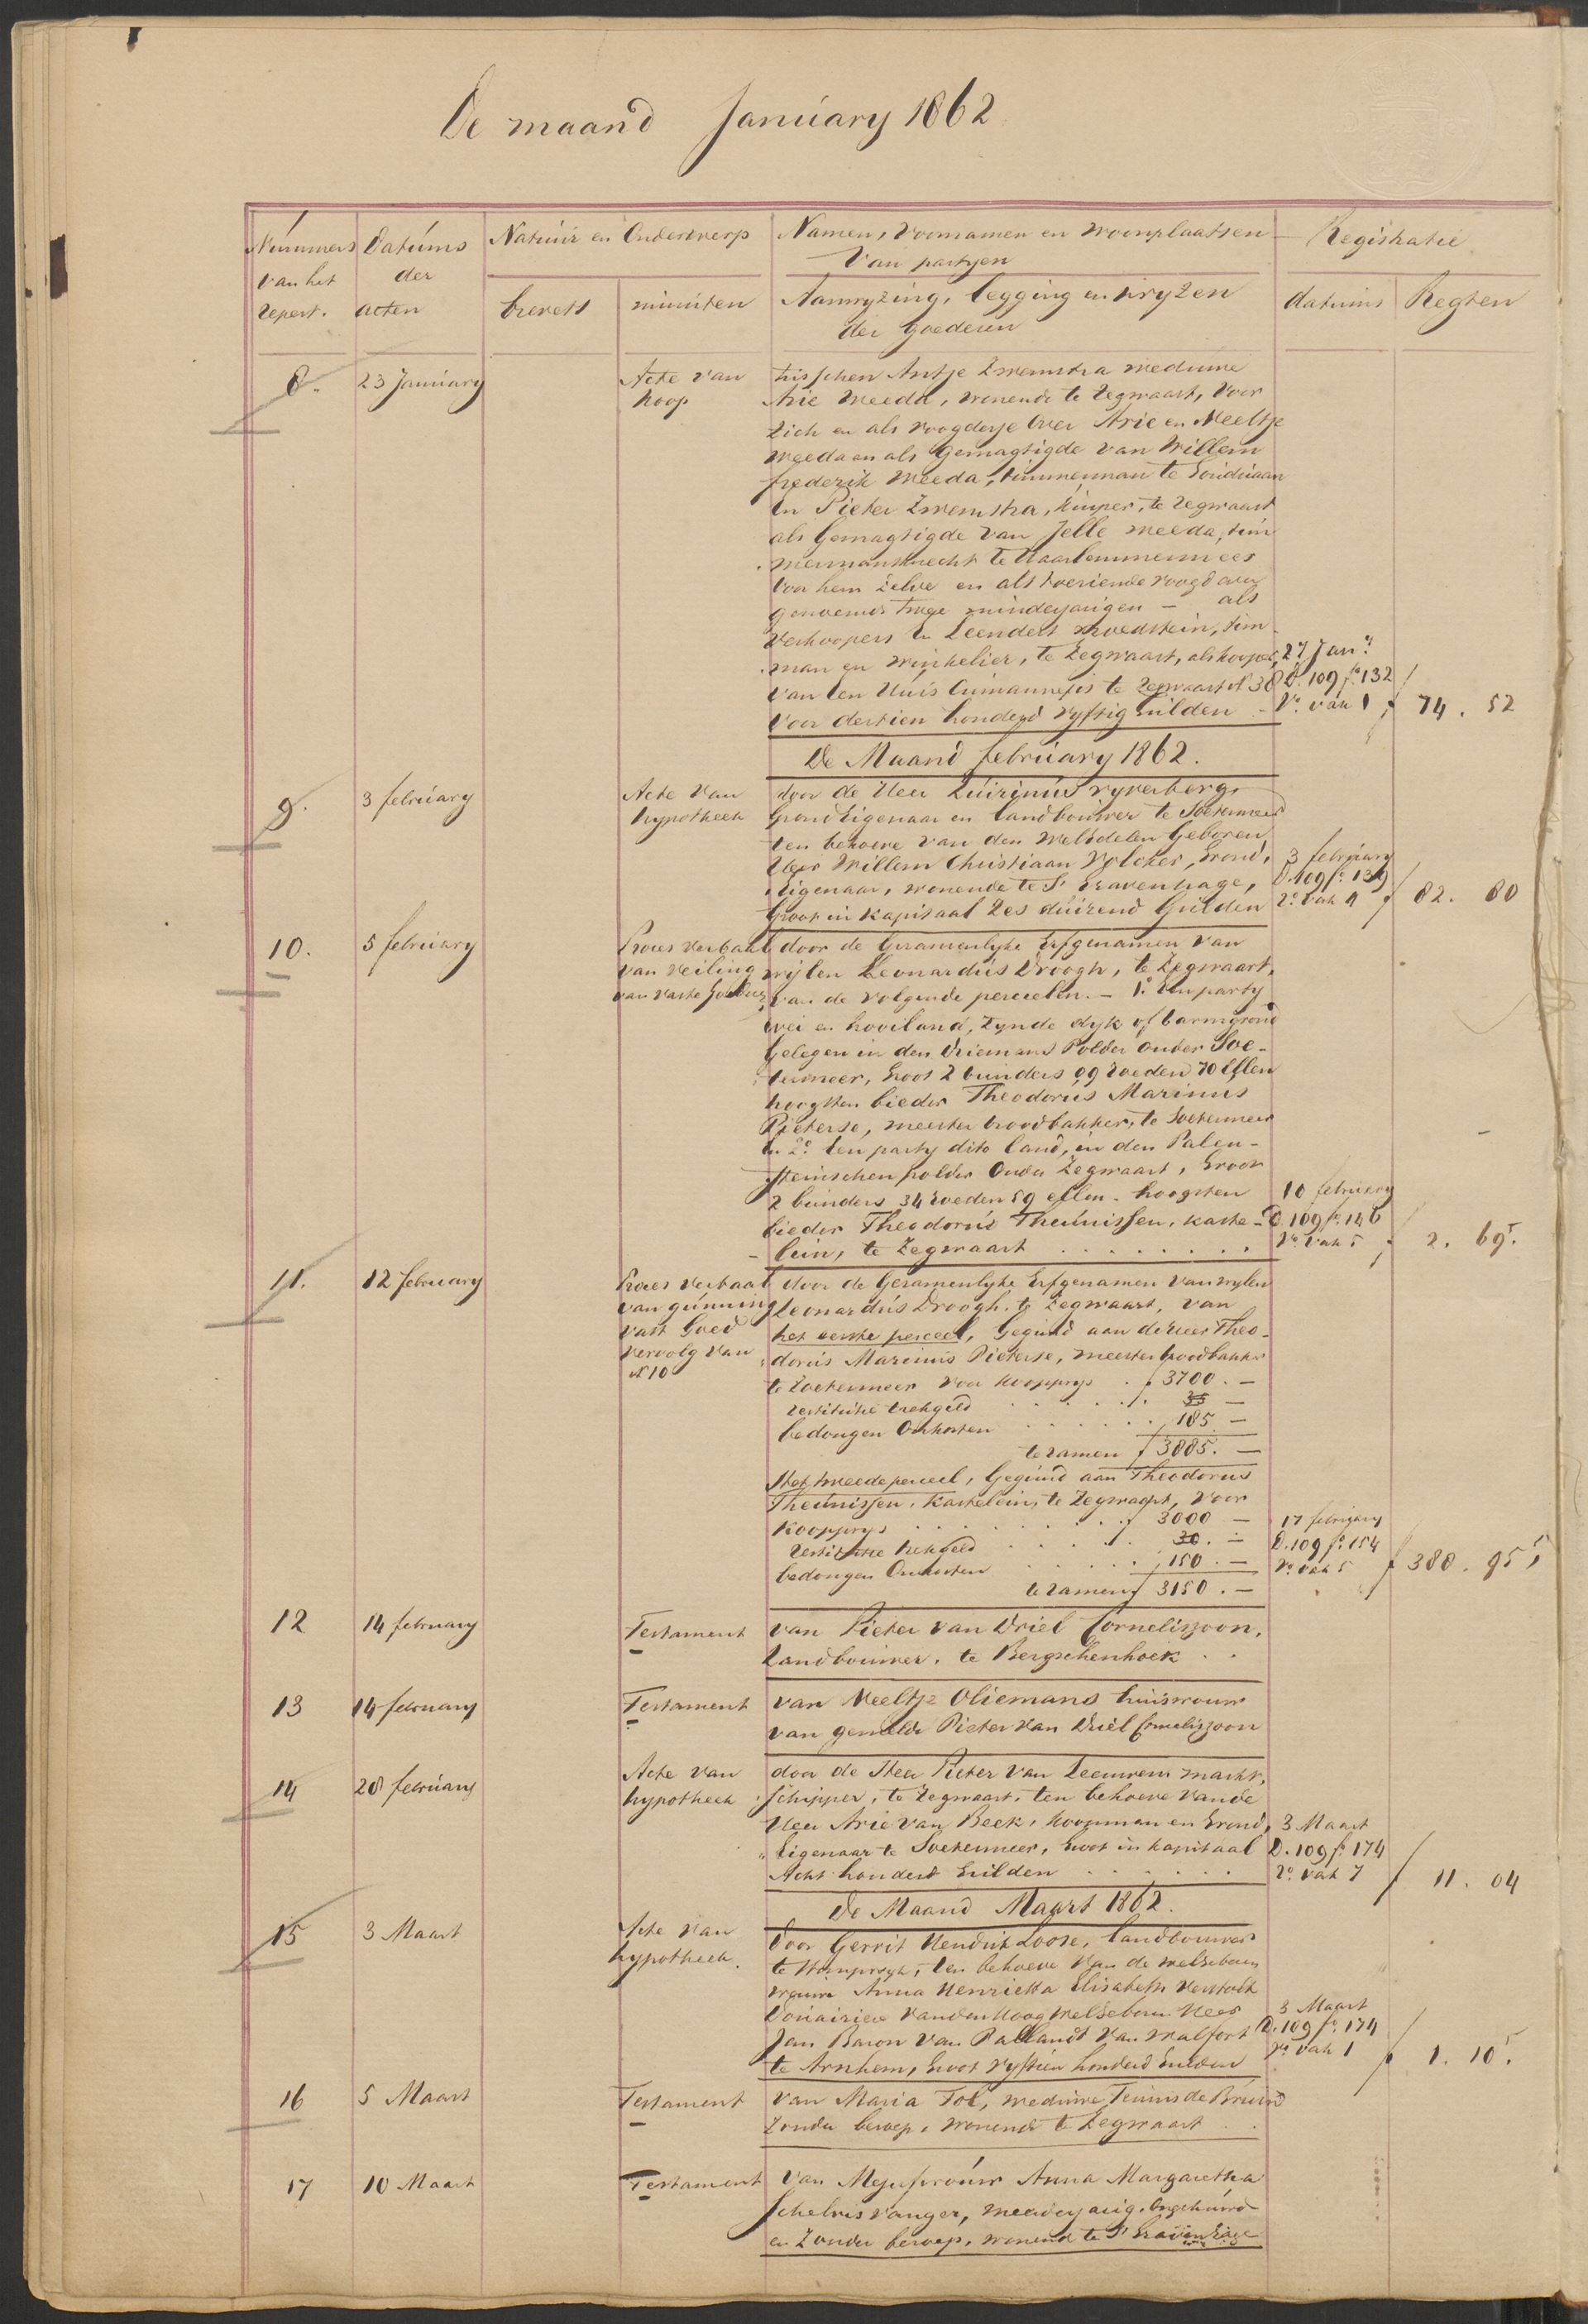 De maand January 1862
Nummers van het repert.
Datums der acten
Natuur en Onderwerp
brevets
minuten
Namen, Voornamen en Woonplaatsen
Van partyen
Aanwyzing, legging en pryzen
der Goederen
Registratie
datums
Regten
8.
23 January
Acte van
koop
tusschen Antje Zwemstra weduwe
Arie Weeda, wonende te Zegwaart, voor
zich en als voogdesje over Arie en Neeltje
Weeda en als Gemagtigde van Willem
frederik Weeda, timmerman te
en Pieter Zwemstra, kuiper, te Zegwaart
als Gemagtigde van Jelle Weeda, tim
mermansknecht te Haarlemmermeer
voor hem zelve en als toeziende voogd over
genoemde twee minderjarigen – als
Verkoopers en Leendert, tim
man en winkelier, te Zegwaart, als kooper,
van een Huis te Zegwaart N 38
voor dertien honderd vyftig Gulden
27 Jany
D. 109 fo. 132
Vo. vak 1
f 74. 52
De Maand february 1862.
9.
3 february
Acte van
hypotheek
door de Heer Quirinus ryverberg,
GrondEigenaar en landbouwer te Soetermeer
ten behoeve van den WelEdelen Geboren
Heer Willem Christiaan, Grond,
Eigenaar, wonende te S' Gravenhage,
Groot in kapitaal zes duizend Gulden
3 february
D. 109 fo. 139
ro. vak 4
f 82. 80
10.
5 february
Proces verbaal
van veiling
van vaste Goederen
door de Gezamenlyke Erfgenamen van
wylen Leonardus Droogh, te Zegwaart,
van de volgende perceelen. – 1o. Een party
wei en hooiland, zynde dyk of barmgrond
Gelegen in den Driemans Polder onder Soe-
termeer, Groot 2 bunders 09 roeden 70 Ellen
hoogsten bieder Theodorus Marinus
Pieterse, meester broodbakker, te Soetermeer
en 2o. Een party dito land, in den Palen-
steinschen polder Onder Zegwaart, Groot
2 bunders 34 roeden 59 ellen. hoogsten
bieder Theodorus Theunissen, kaste-
lein, te Zegwaart
10 february
D. 109 fo. 146
vo. vak 5
f 2. 69 5.
11.
12 february
Proces verbaal
van gunning
vast Goed
vervolg van
N 10
door de Gezamenlyke Erfgenamen van wylen
Leonardus Droogh. te Zegwaart, van
het eerste perceel, Gegund aan de Heer Theo-
dorus Marinus Pieterse, meester broodbakker
te Zoetermeer voor koopprys f 3700. –
restitutie trekgeld 35 –
bedongen Onkosten 185 –
te zamen f 3885. –
Het tweede perceel, Gegund aan Theodorus
Theunissen, kastelein, te Zegwaart, voor
koopprys f 3000 –
restitutie trekgeld 30. –
bedongen Onkosten 150. –
te zamen f 3150. –
17 february
D. 109 fo. 154
vo. vak 5
f 388. 95 5
12
14 february
Testament
van Pieter van Driel Corneliszoon,
landbouwer, te Bergschenhoek
13
14 february
Testament
van Neeltje Oliemans huisvrouw
van gemelde Pieter van Driel Corneliszoon
14
28 february
Acte van
hypotheek
door de Heer Pieter van Leeuwen markt,
schipper, te Zegwaart, ten behoeve van de
Heer Arie van Beek, koopman en Grond,
Eigenaar te Soetermeer, Groot in kapitaal
Acht honderd Gulden
3 Maart
D. 109 fo. 174
ro. vak 7
f 11. 04
De Maand Maart 1862.
15
3 Maart
Acte van
hypotheek.
door Gerrit Hendrik Loose, landbouwer
te Stompwyk, ten behoeve van de welgeboren
vrouwe Anna Henrietta Elisabeth Verstolk
Douairiere van den Hoog WelGeboren Heer
Jan Baron van Pallandt van Walfort
te Arnhem, Groot vyftien honderd Gulden
3 Maart
D. 109 fo. 174
ro. vak 1
f 1. 10 5.
16
5 Maart
Testament
van Maria Tol, weduwe Teunis de Bruin
zonder beroep, wonende te Zegwaart
17
10 Maart
Testament
van Mejufvrouw Anna Margaretha
Schelvisvanger, meerderjarig, ongehuwd
en zonder beroep, wonend te S' Gravenhage